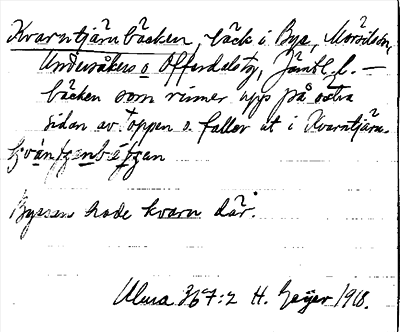 Kvarntjärnbäcken, bäck i Bye, Mörsilssn,
Undersåkers o Offerdalstg, Jämtl. l. —
bäcken som rinner upp på östra
sidan av toppen o. faller ut i Kvarntjärn.
Byssan hade kvarn där.
Ulma 367:2 H. Geijer 1918.